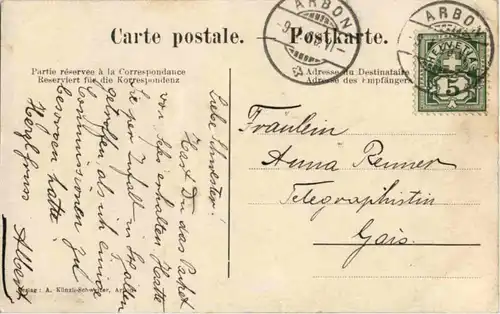 Carte postale. — Postkarte.
Partie réservée à la Correspondance
Reserviert für die Korrespondenz
Adresse du Destinataire
Adresse des Empfängers
ARBON
ARBON
HELVETIA
5
Liebe Schwester!
Hast Du das Packet
von hier erhalten Hatte
sie per Zufall in St. Gallen
getroffen als ich einige
Commissionen zu
besorgen hatte.
Herzl. Gruss Albert
Fräulein
Anna Renner
Telegraphistin
Gais.
Verlag: A. Künzli-Schweizer, Arbon